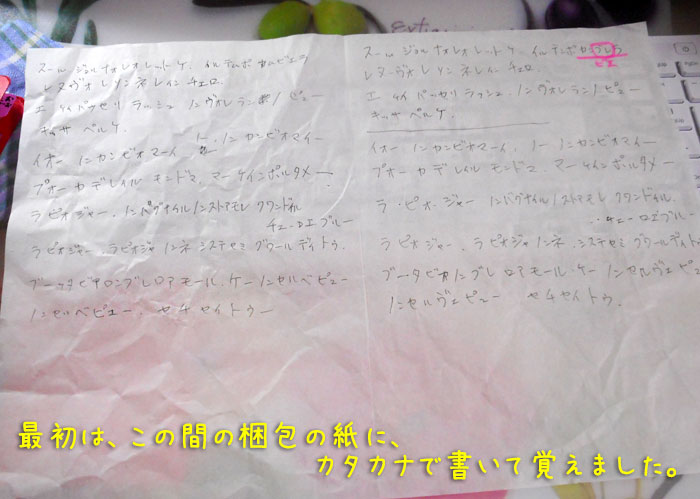 スール ジョルナォレオレットケ. イルテンポ カムビエラ
レヌーヴォレ ノンネ レイン チェロ
エ ケイ パッセリ ラッシュ. ノンヴォレランノ ピュー
キッサ ペルケ.
イオー ノンカンビオマーイ ノー. ノンカンビオマイー
プオー カデレイル モンドマ. マーケ インポルタメー
ラ ピオジャー. ノンバグナイル ノストアモレ クワンドイル
チェーロエ ブルー
ラ ピオジャー. ラ ピオジャ ノンネ. システセミ グワールディトゥ.
ノンセルベピュー. セチセイトゥー
スール ジョルナォレオレットケ. イルテンポカ
ピエ
レヌーヴォレ ノンネ レインチェロ.
エ ケイ パッセリ ラッシュ. ノンヴォレランノ ピュー
キッサ ペルケ.
イオー ノンカンビオマーイ. ノー ノンカンビオマイー
プオー カデレイル モンドマ. マーケインポルタメー
ラ・ピオ. ジャー ノンバグナイル ノストアモレ クワンドイル.
チェーロエブルー
ラ ピオジャー. ラ ピオジャ ノンネ. システセミ グワールディトゥ.
ノンセルヴェ ピュー セチセイトゥ.
最初は、この間の梱包の紙に、
カタカナで書いて覚えました。